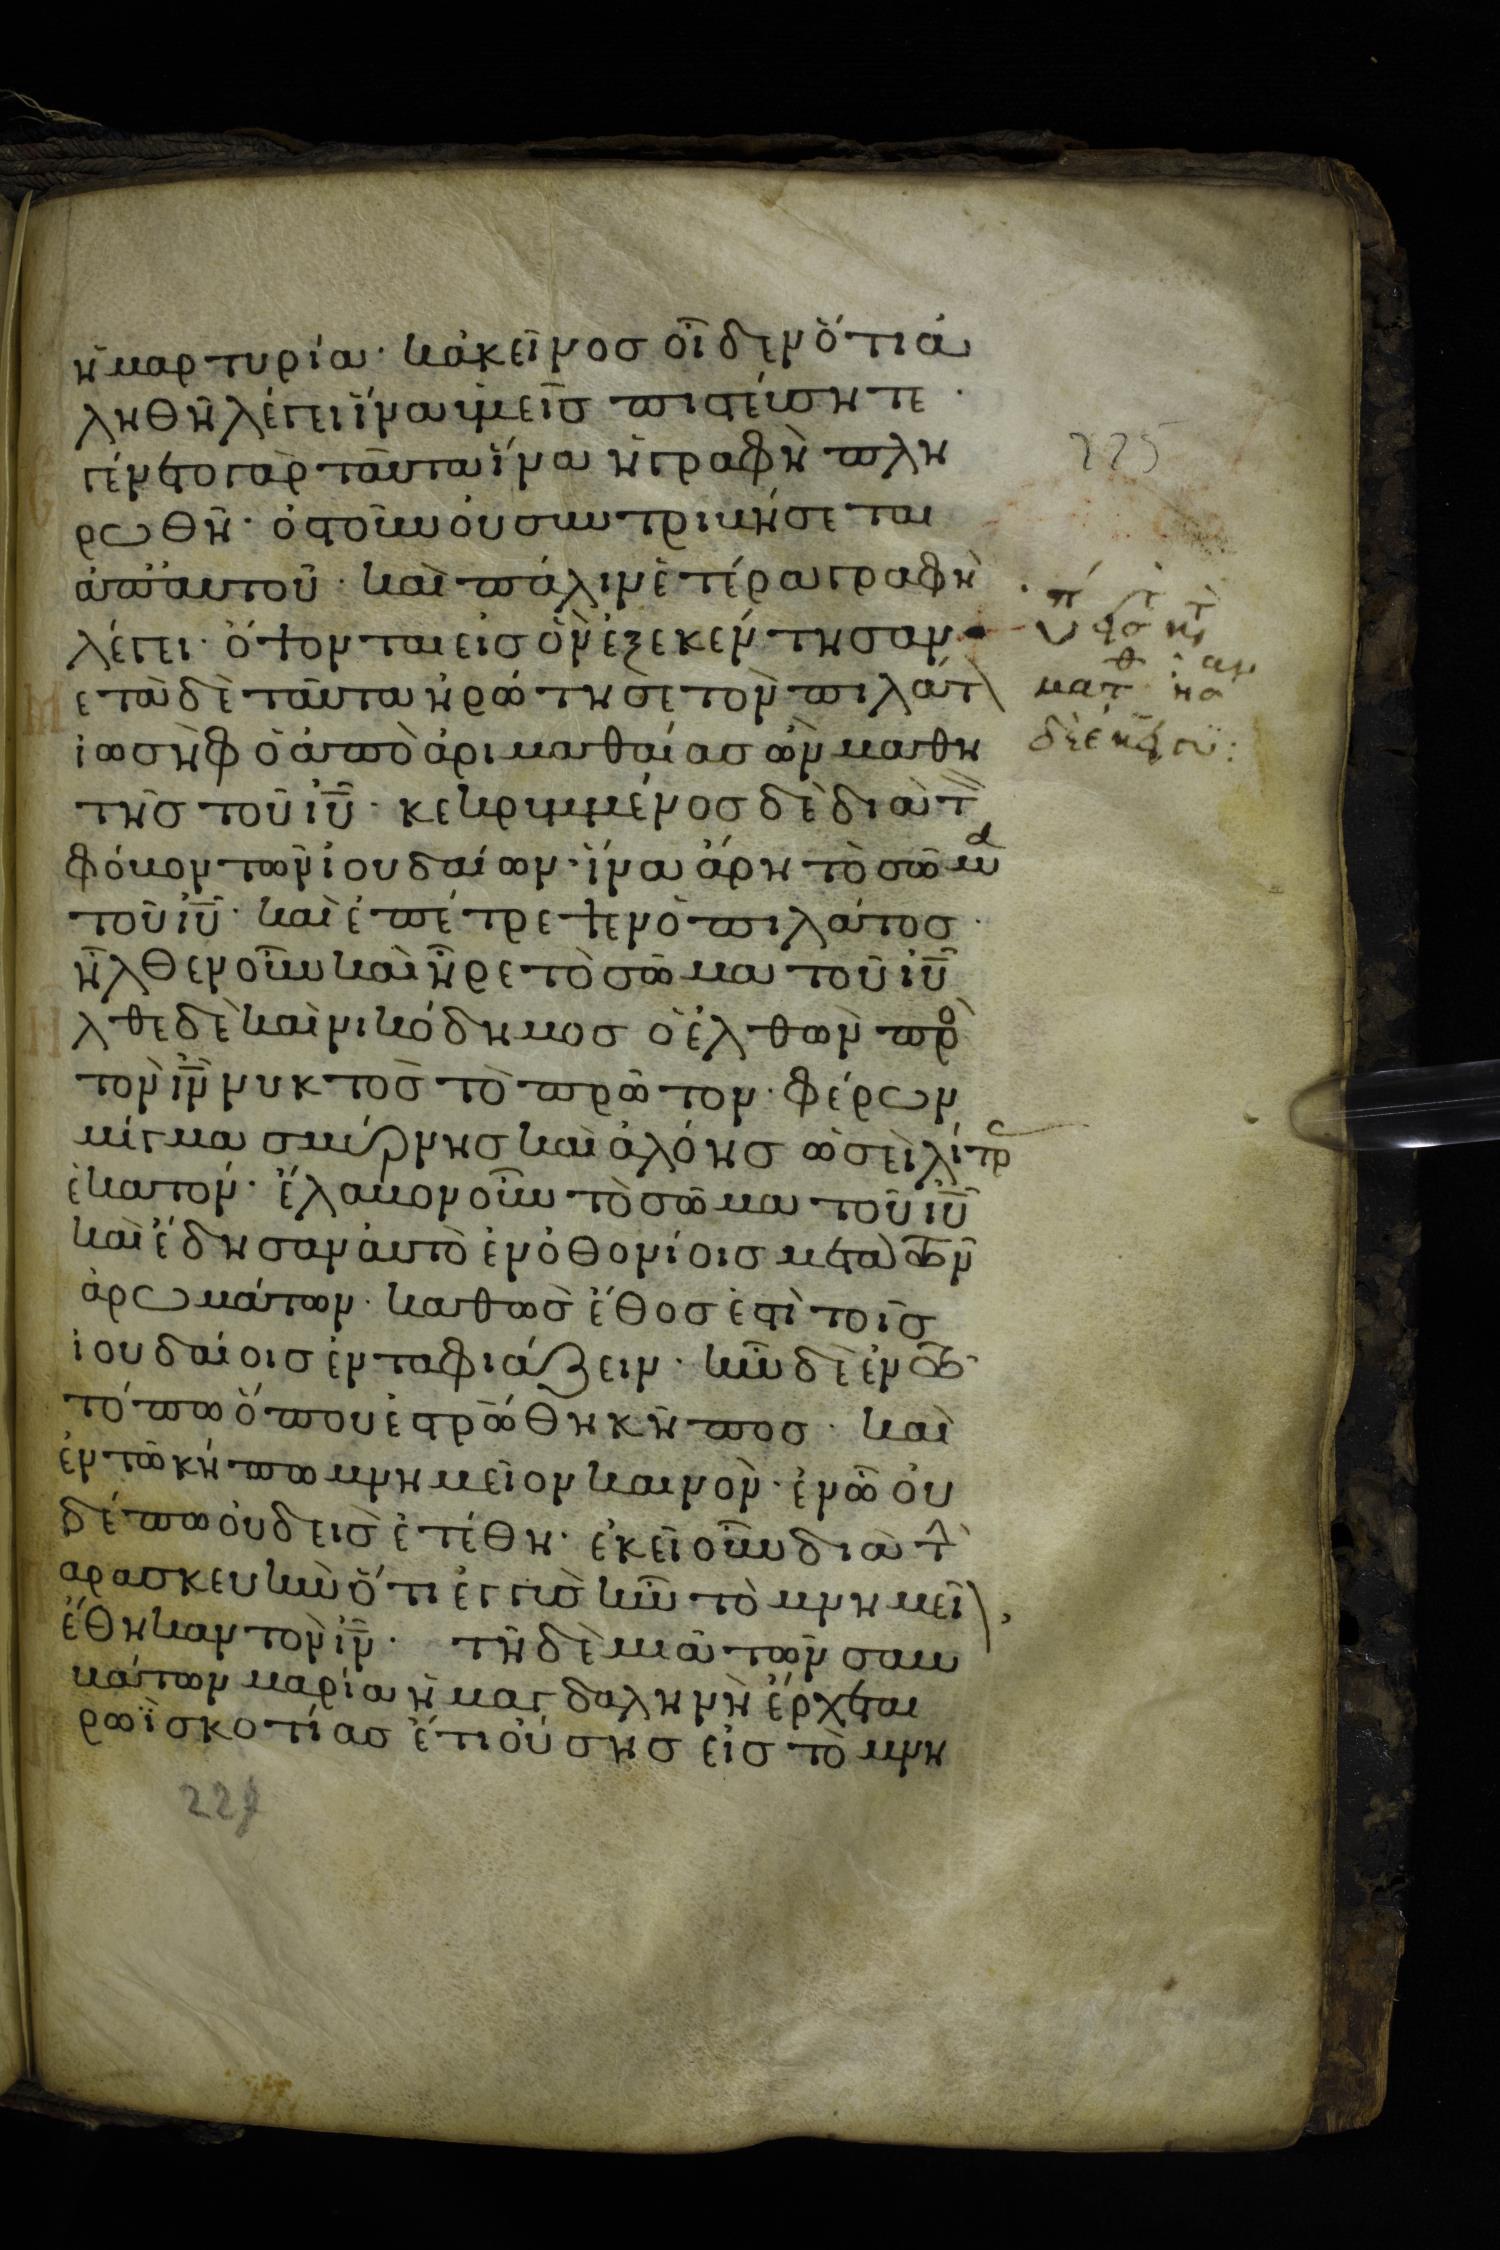 ἡ μαρτυρία· κἀκεῖνος οἶδεν ὅτι ἀ
ληθῆ λέγει ἵνα ὑμεῖς πιστεύσητε·
γένετο γὰρ ταῦτα ἵνα ἡ γραφὴ πλη
ρωθῆ· ὀστοῦν οὐ συντριβήσεται
ἀπ' αὐτοῦ· καὶ πάλιν ἑτέρα γραφὴ
λέγει· ὄψονται εἰς ὃν ἐξεκέντησαν
ετὰ δὲ ταῦτα ἠρώτησε τὸν πιλάτ
ἰωσὴφ ὁ ἀπὸ ἀριμαθαίας ὢν μαθη
τὴς τοῦ ἰῦ· κεκρυμμένος δὲ διὰ τ
φόβον τῶν ἰουδαίων· ἵνα ἄρη τὸ σῶμα
τοῦ ἰῦ· καὶ ἐπέτρεψεν ὁ πιλάτος·
ἦλθεν οὖν καὶ ἦρε τὸ σῶμα τοῦ ἰῦ
λθε δὲ καὶ νικόδημος ὁ ἐλθὼν πρὸ
τὸν ἰν νυκτὸς τὸ πρῶτον· φέρων
μίγμα σμύρνης καὶ ἀλόης ὡσεὶ λίτρ
ἑκατόν· ἔλαβον οὖν τὸ σῶμα τοῦ ἰῦ
καὶ ἔδησαν αὐτὸ ἐν ὀθονίοις μετὰ τῶν
ἀρωμάτων· καθὼς ἔθος ἐστὶ τοῖς
ἰουδαίοις ἐνταφιάζειν· ἦν δὲ ἐν τῶ
τόπω ὅπου ἐστρώθη κῆπος· καὶ
ἐν τῶ κήπω μνημεῖον καινὸν· ἐν ὧ οὐ
δέπω οὐδεὶς ἐτέθη· ἐκεῖ οὖν διὰ τ
αρασκευὴν ὅτι ἐγγὺς ἦν τὸ μνημεῖ
ἔθηκαν τὸν ἰν· τῆ δὲ μιᾶ τῶν σαβ
βάτων μαρία ἡ μαγδαληνὴ ἔρχεται
ρωῒ σκοτίας ἔτι οὔσης εἰς τὸ μνη
225